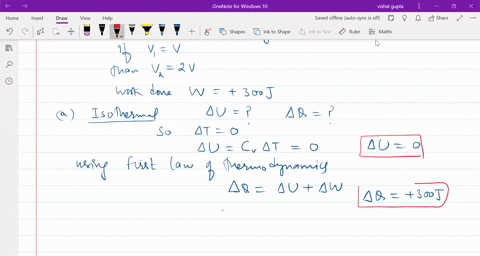 OneNote for Windows 10
vishal gupta
Home Insert Draw View Help
Saved offline (auto-sync is off)
Share
Ink to Shape
Ink to Text
Ruler
Maths
if V₁ = V
than V₂ = 2V
work done W = +300J
(a) Isothermal ΔU = ? ΔQ = ?
So ΔT = 0
ΔU = Cᵥ ΔT = 0
ΔU = 0
using first law of thermodynamics
ΔQ = ΔU + ΔW
ΔQ = +300J